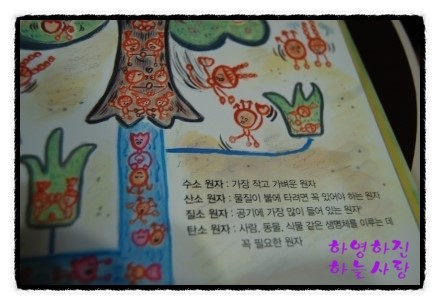 수소 원자 : 가장 작고 가벼운 원자
산소 원자 : 물질이 불에 타려면 꼭 있어야 하는 원자
질소 원자 : 공기에 가장 많이 들어 있는 원자
탄소 원자 : 사람, 동물, 식물 같은 생명체를 이루는 데
꼭 필요한 원자
하영하진
하늘사랑